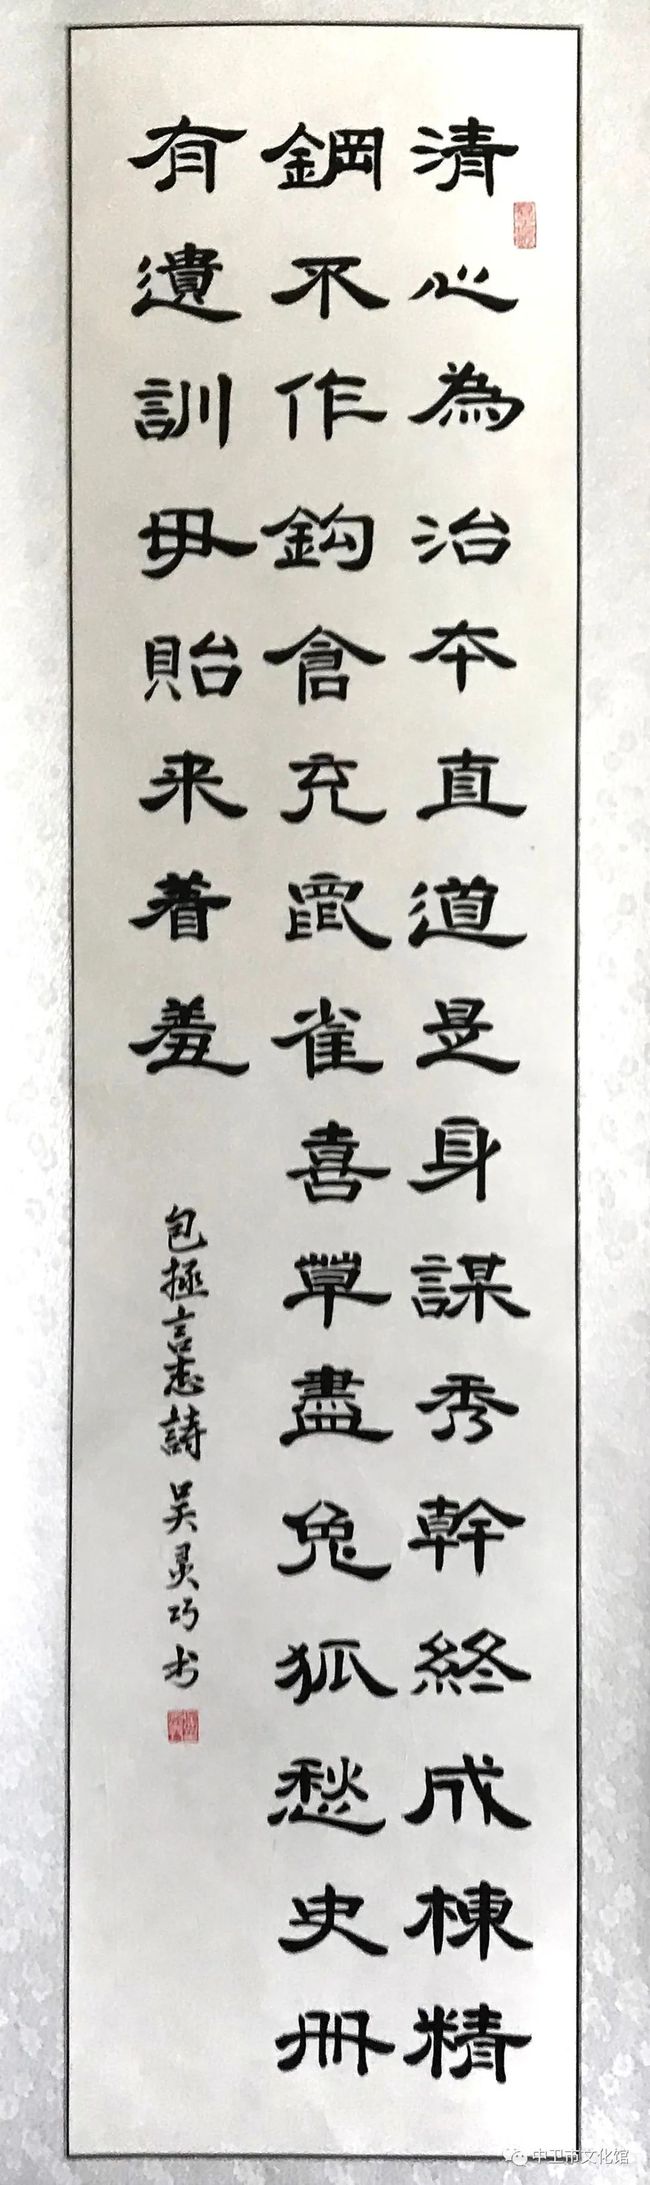 清心為治本直道是身謀秀幹終成棟精
鋼不作鈎倉充䑕雀喜草盡兔狐愁史册
有遺訓毋貽来着羞
包拯言志詩 吴灵巧书
中卫市文化馆